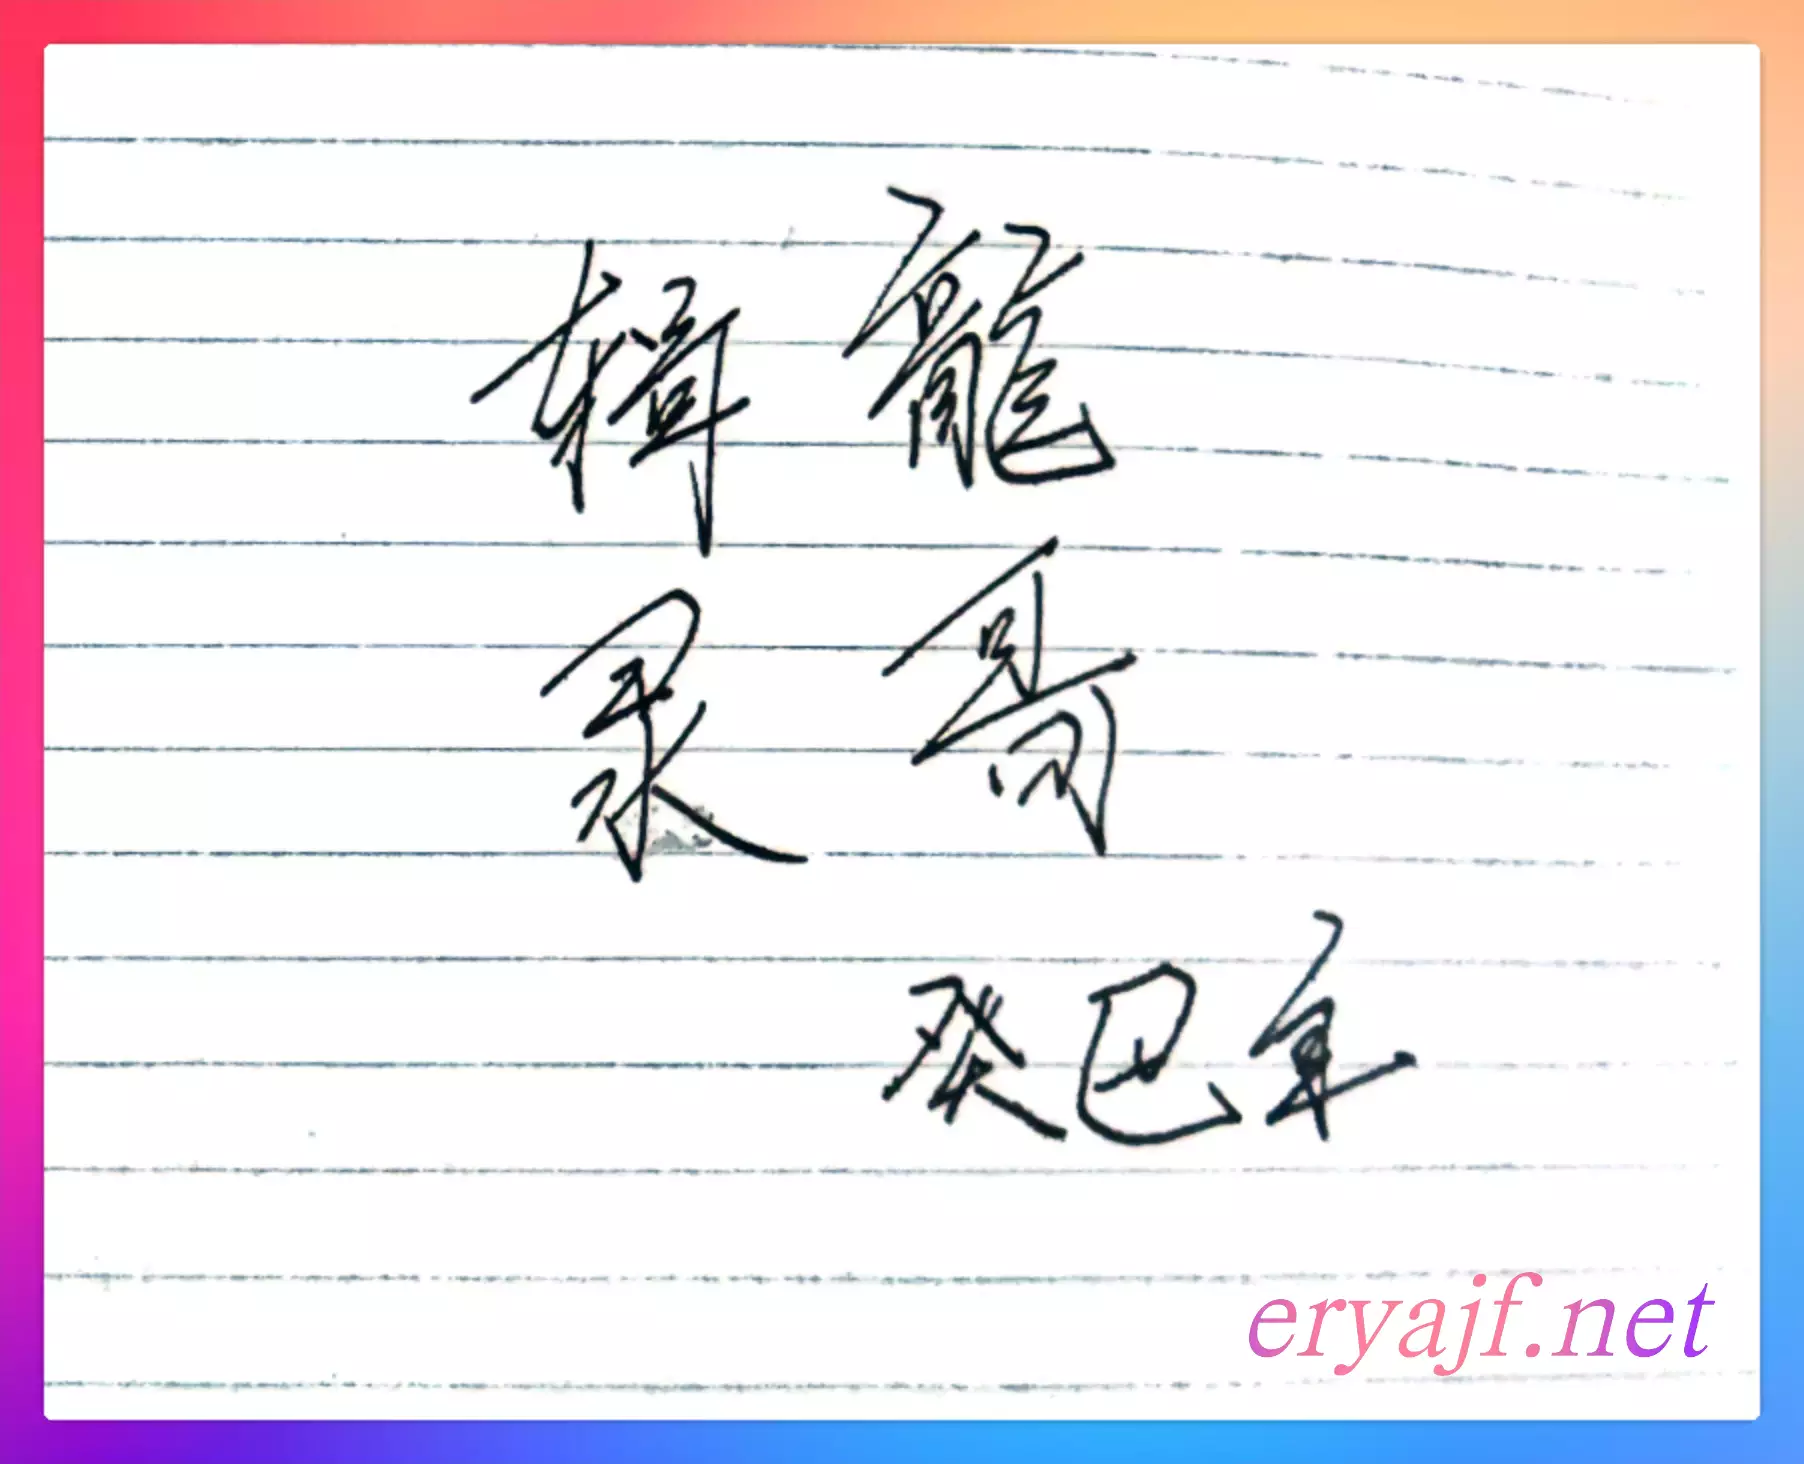 龍哥
辑录
癸巳年
eryajf.net